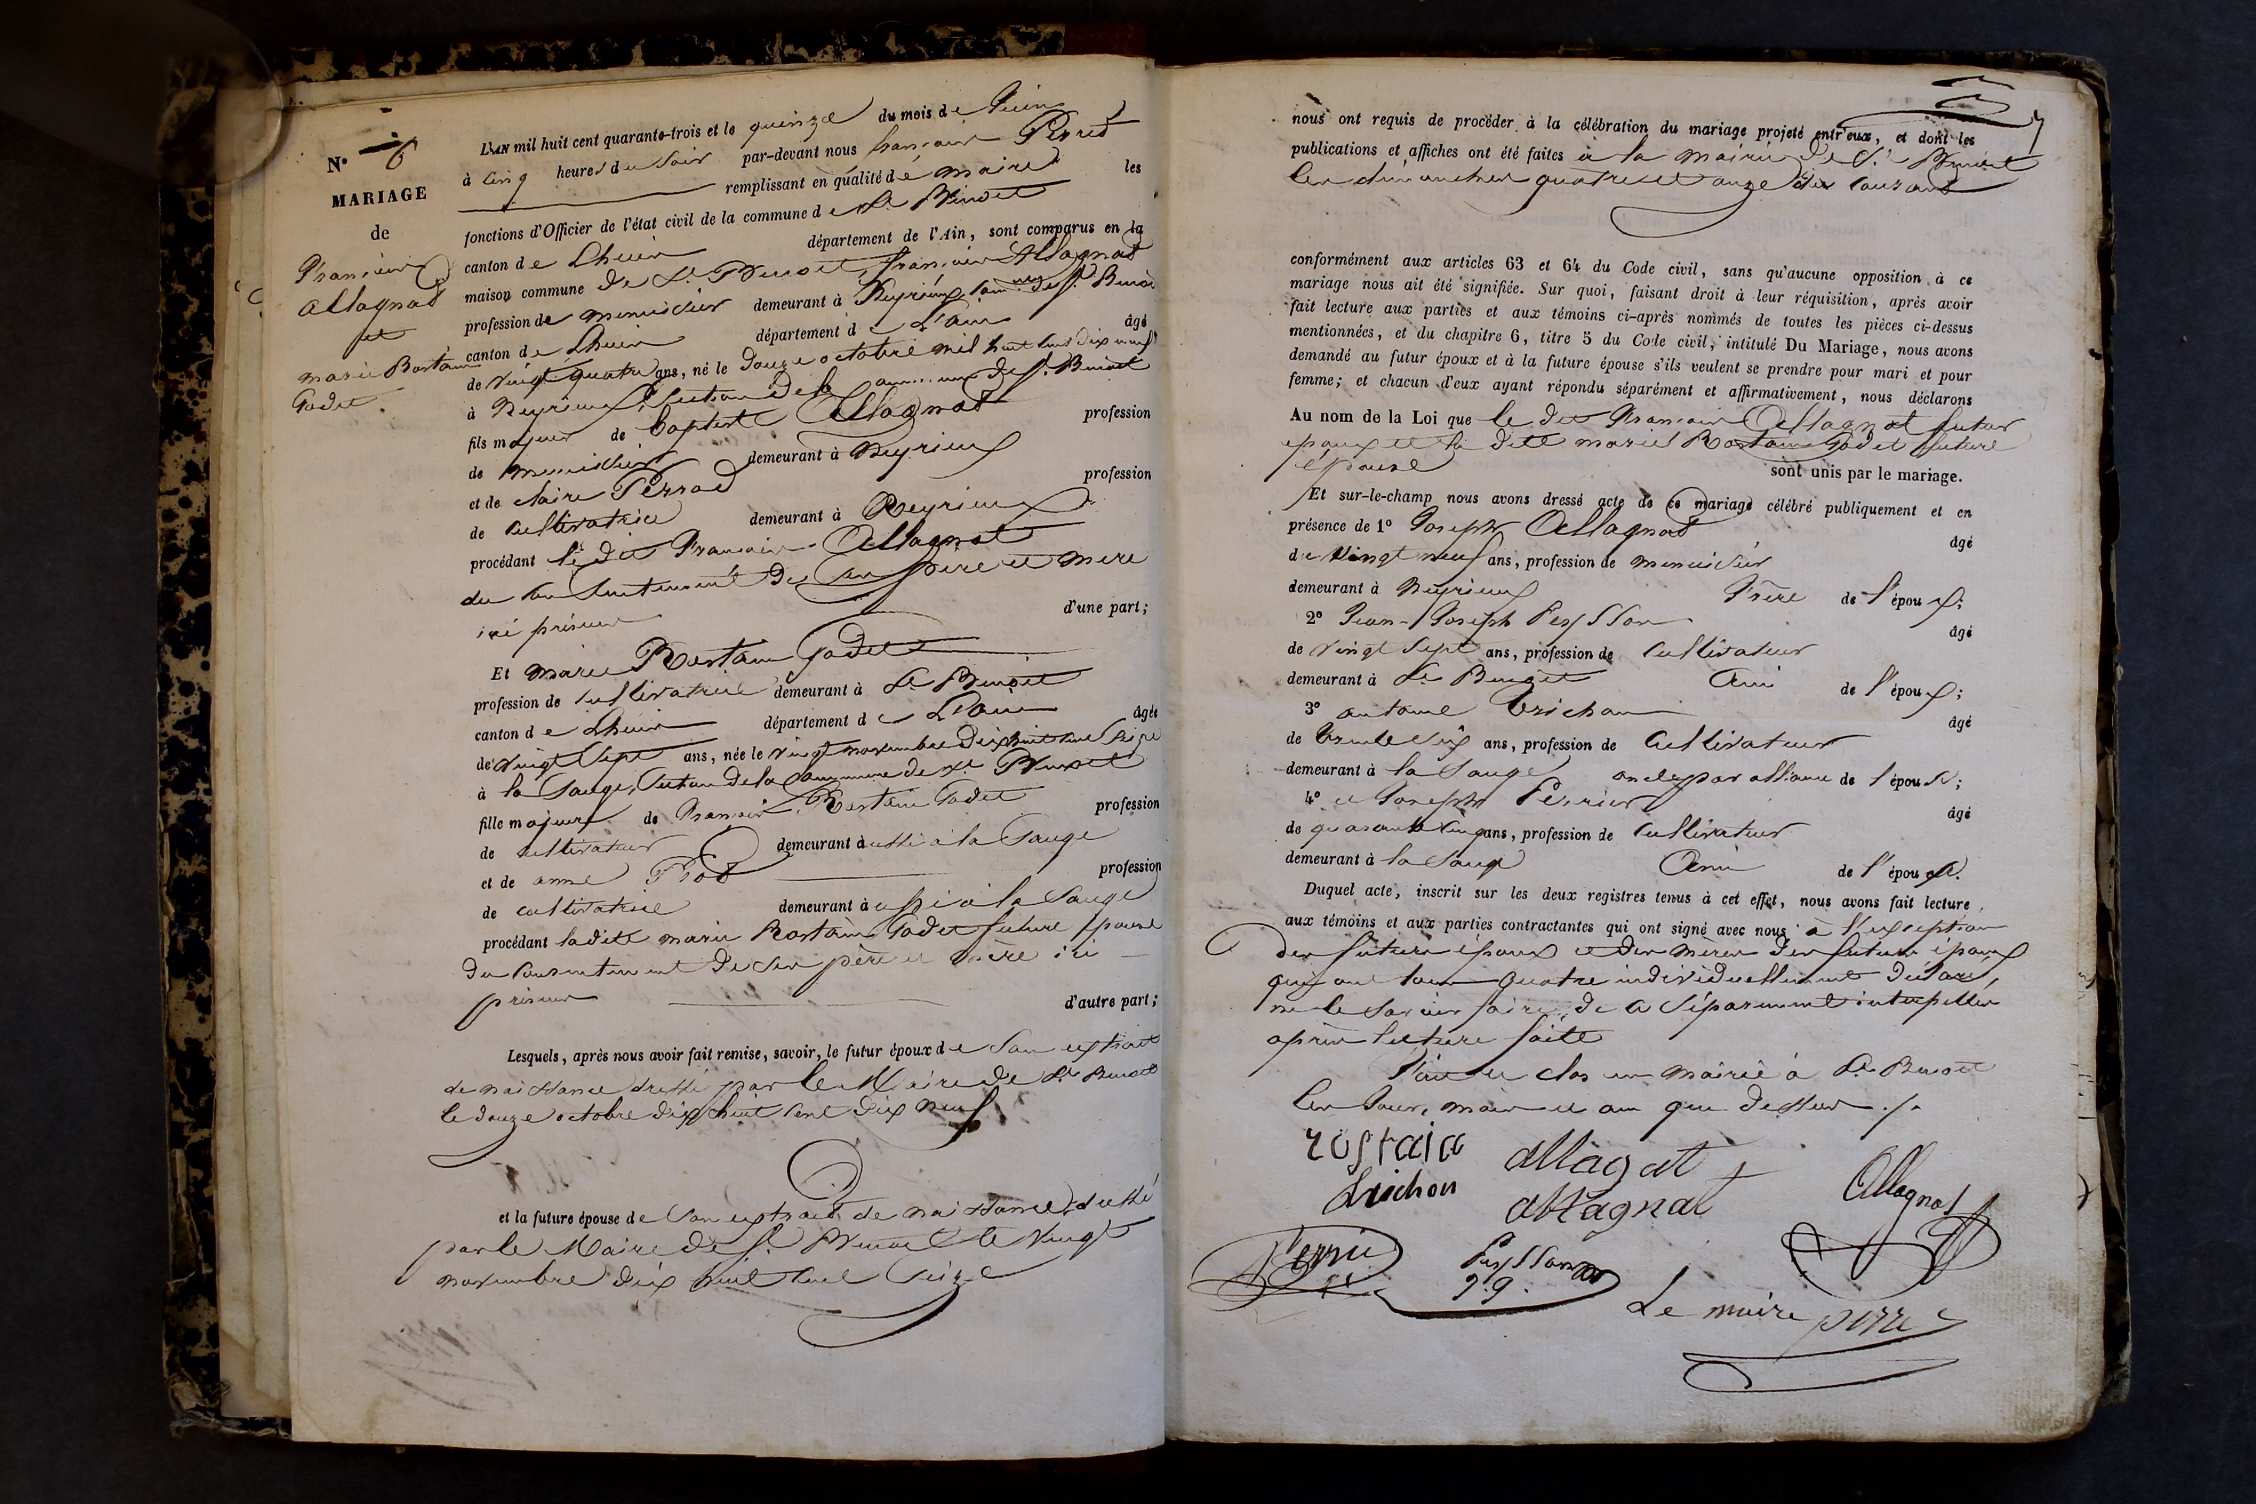 N° 6
MARIAGE
de
François
Allagnat
et
marie Rostain
Godet.
L'AN mil huit cent quarante-trois et le quinze du mois de Juin
à cinq heures du soir par-devant nous françois Perret
remplissant en qualité de maire les
fonctions d'Officier de l'état civil de la commune de St. Benoit
canton de Lhuis département de l'Ain, sont comparus en la
maison commune de St. Benoit, françois Allagnat
profession de menuisier demeurant à Neyrieux, commune de St. Benoit
canton de Lhuis département de L'Ain âgé
de vingt quatre ans, né le douze octobre mil huit cent dix neuf
à Neyrieux, section de la commune de St. Benoit
fils majeur de baptiste Allagnat profession
de menuisier demeurant à Neyrieux
et de claire Perrad profession
de cultivatrice demeurant à Neyrieux
procédant le dit François Allagnat
du consentement de ses père et mere
ici présens d'une part;
Et marie Rostain Godet
profession de cultivatrice demeurant à St. Benoit
canton de Lhuis département de L'Ain âgée
de vingt sept ans, née le vingt novembre dix huit cent seize
à la Sauge, section de la commune de St. Benoit
fille majeure de François Rostain Godet profession
de cultivateur demeurant aussi à la Sauge
et de anne profession
de cultivatrice demeurant aussi à la Sauge
procédant ladite marie Rostain Godet future épouse
du consentement de ses père et mère ici
présens d'autre part;
Lesquels, après nous avoir fait remise, savoir, le futur époux de son extrait
de naissance dressé par le Maire de St. Benoit
le douze octobre dix huit cent dix neuf
et la future épouse de son extrait de naissance, dressé
par le Maire de St. Benoit le vingt
novembre dix huit cent seize
nous ont requis de procéder à la célébration du mariage projeté entr'eux, et dont les
publications et affiches ont été faites à la mairie de St. Benoit
les dimanches quatre et onze du courant
conformément aux articles 63 et 64 du Code civil, sans qu'aucune opposition à ce
mariage nous ait été signifiée. Sur quoi, faisant droit à leur réquisition, après avoir
fait lecture aux parties et aux témoins ci-après nommés de toutes les pièces ci-dessus
mentionnées, et du chapitre 6, titre 5 du Code civil, intitulé Du Mariage, nous avons
demandé au futur époux et à la future épouse s'ils veulent se prendre pour mari et pour
femme; et chacun d'eux ayant répondu séparément et affirmativement, nous déclarons
Au nom de la Loi que le dit François Allagnat futur
epoux et la dite marie Rostain Godet future
épouse
sont unis par le mariage.
Et sur-le-champ nous avons dressé acte de ce mariage célébré publiquement et en
présence de 1° Joseph Allagnat âgé
de vingt neuf ans, profession de menuisier
demeurant à Neyrieux frère de l'époux;
2° Jean-Joseph Peysson âgé
de vingt sept ans, profession de cultivateur
demeurant à St. Benoit Ami de l'époux;
3° antoine Trichon âgé
de trente six ans, profession de cultivateur
demeurant à la Sauge oncle par alliance de l'épouse;
4° et Joseph Perrier âgé
de quarante cinq ans, profession de cultivateur
demeurant à la Sauge Ami de l'épouse.
Duquel acte, inscrit sur les deux registres tenus à cet effet, nous avons fait lecture
aux témoins et aux parties contractantes qui ont signé avec nous à l'exception
des futurs époux et des mères des futurs époux
qui ont tous quatre individuellement déclaré
ne le savoir faire, de ce séparement interpellés
après lecture faite
Fait et clos en mairie à St. Benoit
les jour, mois et an que dessus ./.
rostain allagat Allagnat
trichon allagnat
Perrié Peysson
J.J.
Le maire perret